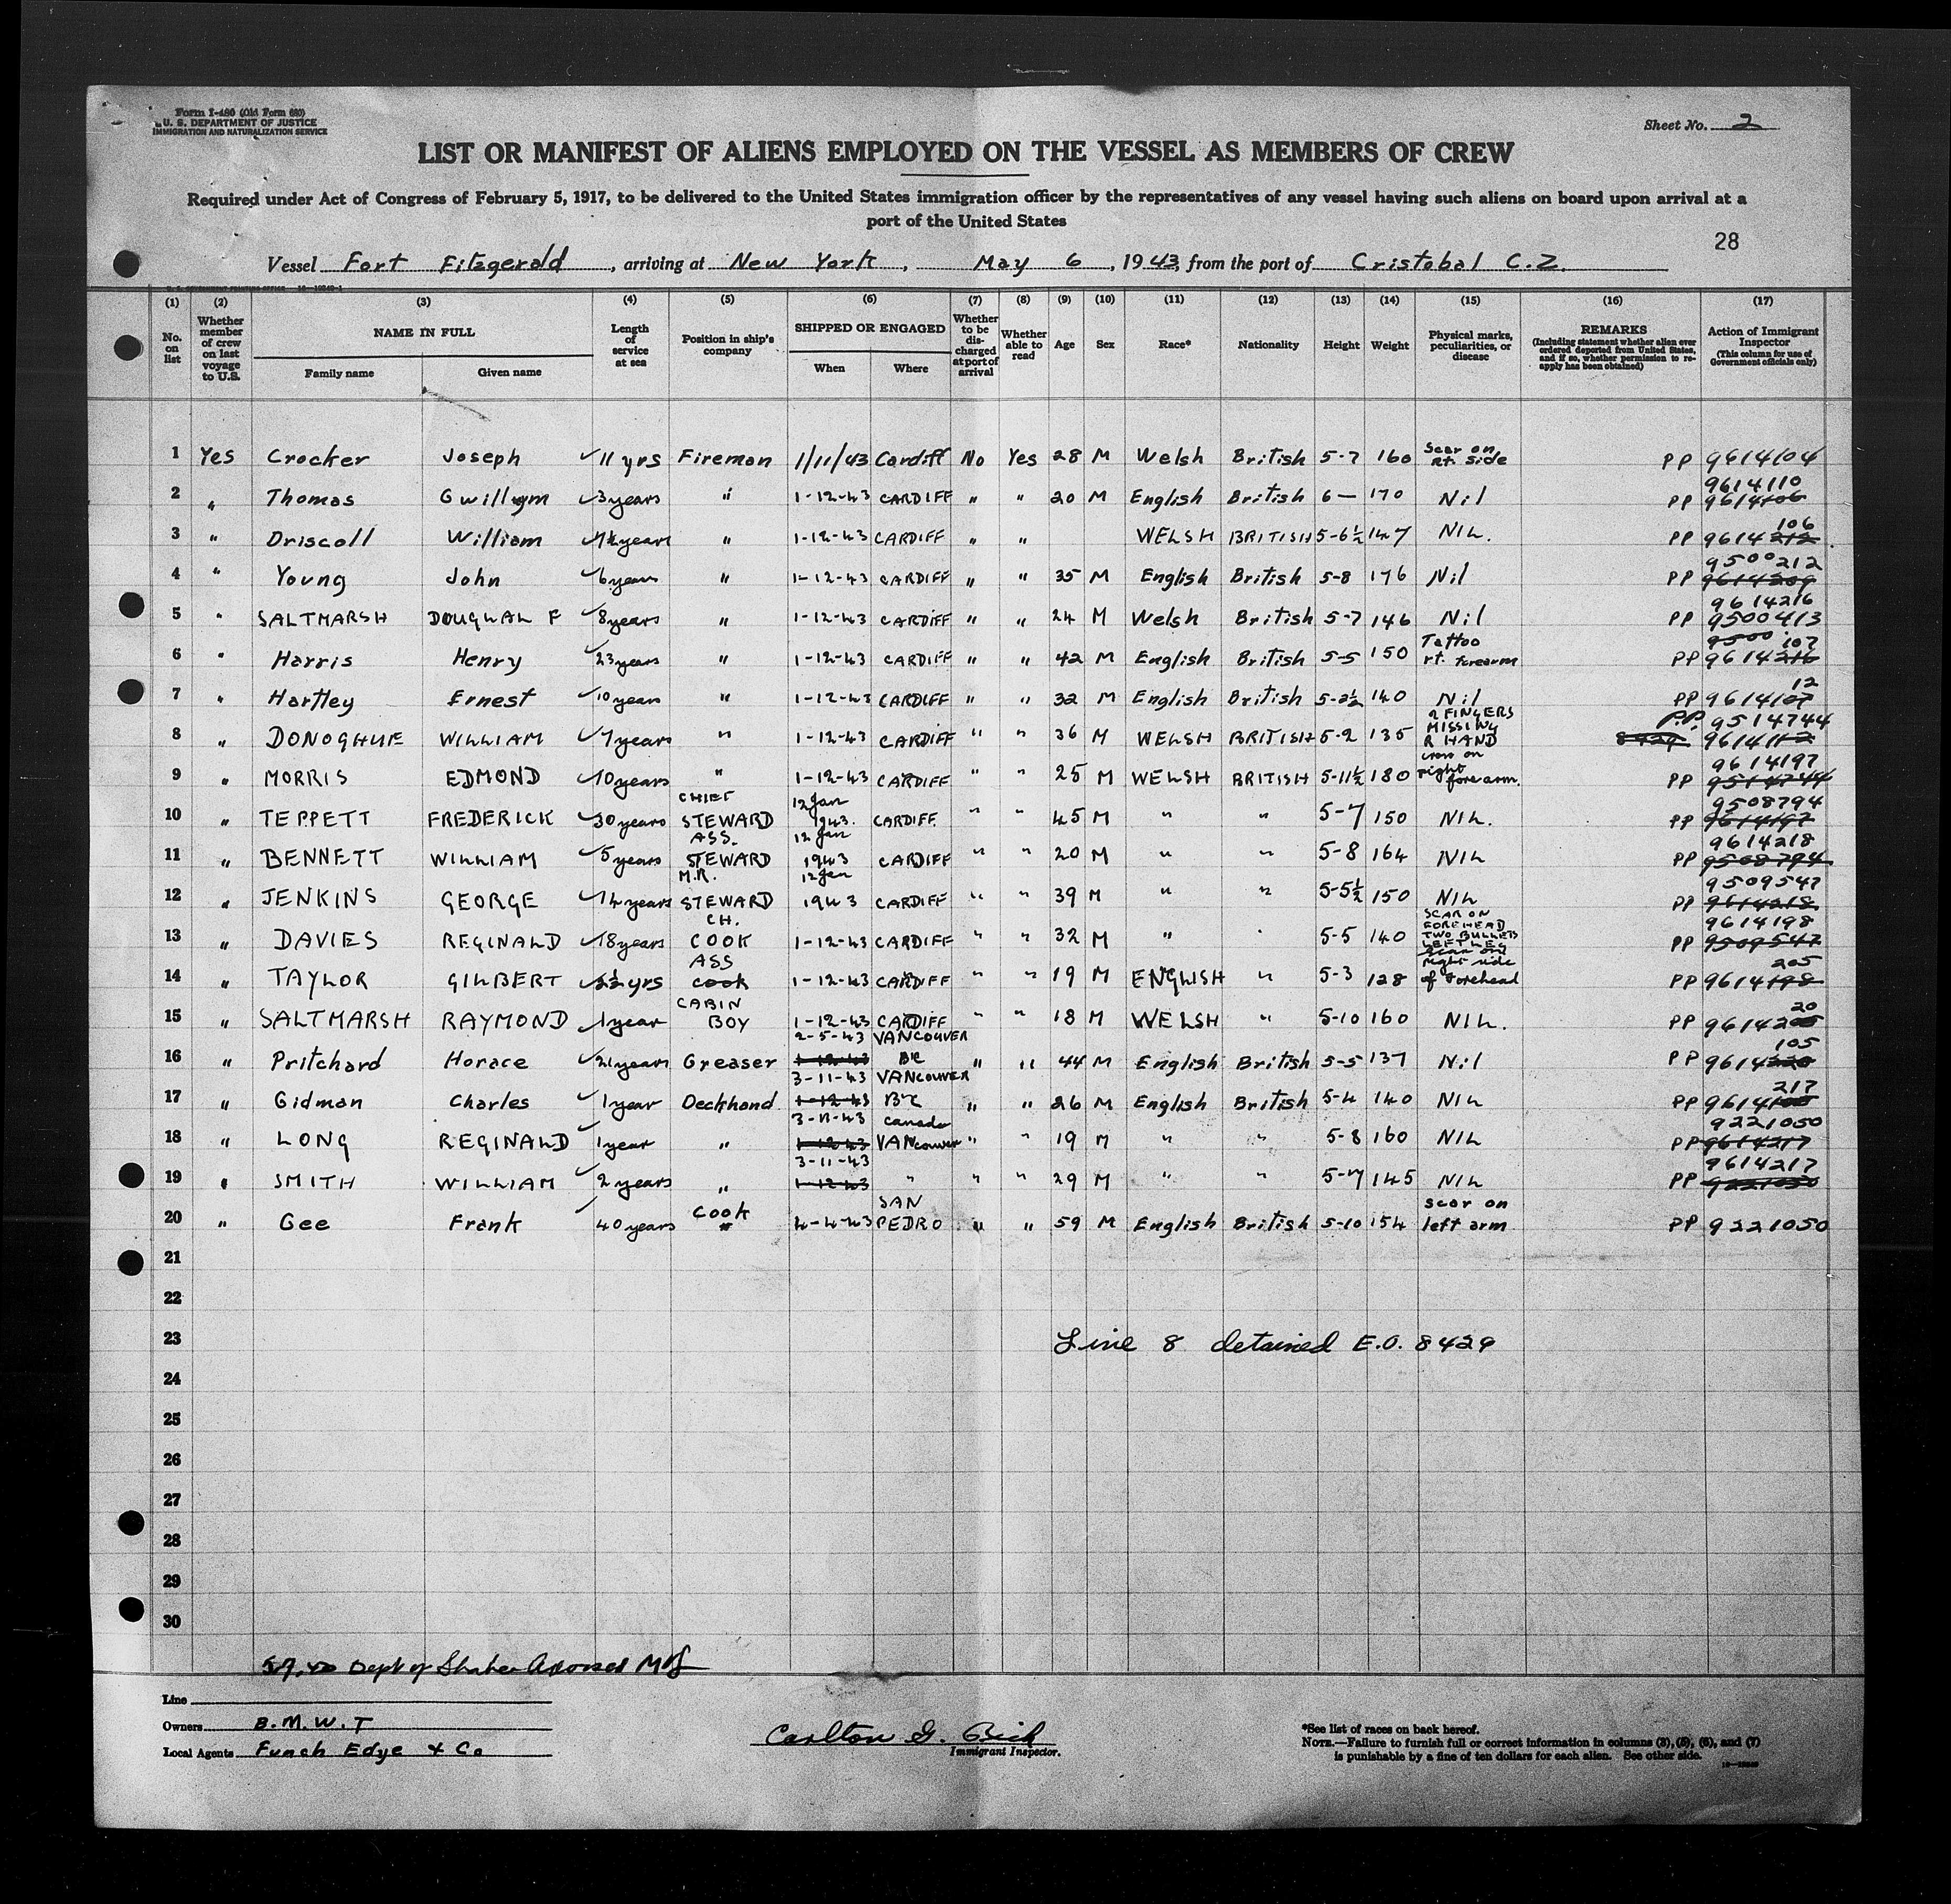 Form I-480 (Old Form 680)
U. S. DEPARTMENT OF JUSTICE
IMMIGRATION AND NATURALIZATION SERVICE
Sheet No. 2
LIST OR MANIFEST OF ALIENS EMPLOYED ON THE VESSEL AS MEMBERS OF CREW
Required under Act of Congress of February 5, 1917, to be delivered to the United States immigration officer by the representatives of any vessel having such aliens on board upon arrival at a
port of the United States
28
Vessel Fort Fitzgerald, arriving at New York, May 6, 1943 from the port of Cristobal C.Z.
(1) (2) (3) (4) (5) (6) (7) (8) (9) (10) (11) (12) (13) (14) (15) (16) (17)
No. on list
Whether member of crew on last voyage to U.S.
NAME IN FULL
Family name Given name
Length of service at sea
Position in ship's company
SHIPPED OR ENGAGED
When Where
Whether to be discharged at port of arrival
Whether able to read
Age
Sex
Race*
Nationality
Height
Weight
Physical marks, peculiarities, or disease
REMARKS
(Including statement whether alien ever ordered deported from United States, and if so, whether permission to reapply has been obtained)
Action of Immigrant Inspector
(This column for use of Government officials only)
1 Yes Crocker Joseph 11 yrs Fireman 1/11/43 Cardiff No Yes 28 M Welsh British 5-7 160 Scar on rt. side PP 9614104
2 " Thomas Gwillym 3 years " 1-12-43 CARDIFF " " 20 M English British 6 — 170 Nil PP 9614110 9614106
3 " Driscoll William years " 1-12-43 CARDIFF " " WELSH BRITISH 5-6½ 147 NIL. PP 9614 106 212
4 " Young John 6 years " 1-12-43 CARDIFF " " 35 M English British 5-8 176 Nil PP 9500212 9614209
5 " SALTMARSH DOUGLAL F 8 years " 1-12-43 CARDIFF " " 24 M Welsh British 5-7 146 Nil PP 9614216 9500413
6 " Harris Henry 23 years " 1-12-43 CARDIFF " " 42 M English British 5-5 150 Tattoo rt. forearm PP 9500 107 9614216
7 " Hartley Ernest 10 years " 1-12-43 CARDIFF " " 32 M English British 5-2½ 140 Nil PP 12 9614107
8 " DONOGHUE WILLIAM 7 years " 1-12-43 CARDIFF " " 36 M WELSH BRITISH 5-2 135 2 FINGERS MISSING R HAND 8429 P.P. 9514744 9614112
9 " MORRIS EDMOND 10 years " 1-12-43 CARDIFF " " 25 M WELSH BRITISH 5-11½ 180 cross on right forearm. PP 9614197 9514744
10 " TEPPETT FREDERICK 30 years CHIEF STEWARD 12 Jan 1943. CARDIFF. " " 45 M " " 5-7 150 NIL. PP 9508794 9614197
11 " BENNETT WILLIAM 5 years ASS. STEWARD 12 Jan 1943 CARDIFF " " 20 M " " 5-8 164 NIL PP 9614218 9508794
12 " JENKINS GEORGE 14 years M.R. STEWARD 12 Jan 1943 CARDIFF " " 39 M " " 5-5½ 150 NIL PP 9509547 9614218
13 " DAVIES REGINALD 18 years CH. COOK 1-12-43 CARDIFF " " 32 M " " 5-5 140 SCAR ON FOREHEAD TWO BULLETS LEFT LEG PP 9614198 9509547
14 " TAYLOR GILBERT 2½ yrs ASS cook 1-12-43 CARDIFF " " 19 M ENGLISH " 5-3 128 Scar on right side of forehead PP 205 9614198
15 " SALTMARSH RAYMOND 1 year CABIN BOY 1-12-43 CARDIFF " " 18 M WELSH " 5-10 160 NIL. PP 20 9614205
16 " Pritchard Horace 21 years Greaser 2-5-43 1-12-43 VANCOUVER BC " " 44 M English British 5-5 137 Nil PP 105 9614220
17 " Gidman Charles 1 year Deckhand 3-11-43 1-12-43 VANCOUVER BC " " 26 M English British 5-4 140 NIL PP 217 9614105
18 " LONG REGINALD 1 year " 3-11-43 1-12-43 canada VANcouver " " 19 M " " 5-8 160 NIL PP 9221050 9614217
19 " SMITH WILLIAM 2 years " 3-11-43 1-12-43 " " " 29 M " " 5-7 145 NIL PP 9614217 9221050
20 " Gee Frank 40 years Cook " 4-4-43 SAN PEDRO " " 59 M English British 5-10 154 scar on left arm PP 9221050
21
22
23 Line 8 detained E.O. 8429
24
25
26
27
28
29
30
Dept of
Line
Owners B.M.W.T
Local Agents Funch Edye & Co
Carlton G. Bick
Immigrant Inspector.
*See list of races on back hereof.
NOTE.—Failure to furnish full or correct information in columns (3), (5), (6), and (7)
is punishable by a fine of ten dollars for each alien. See other side.